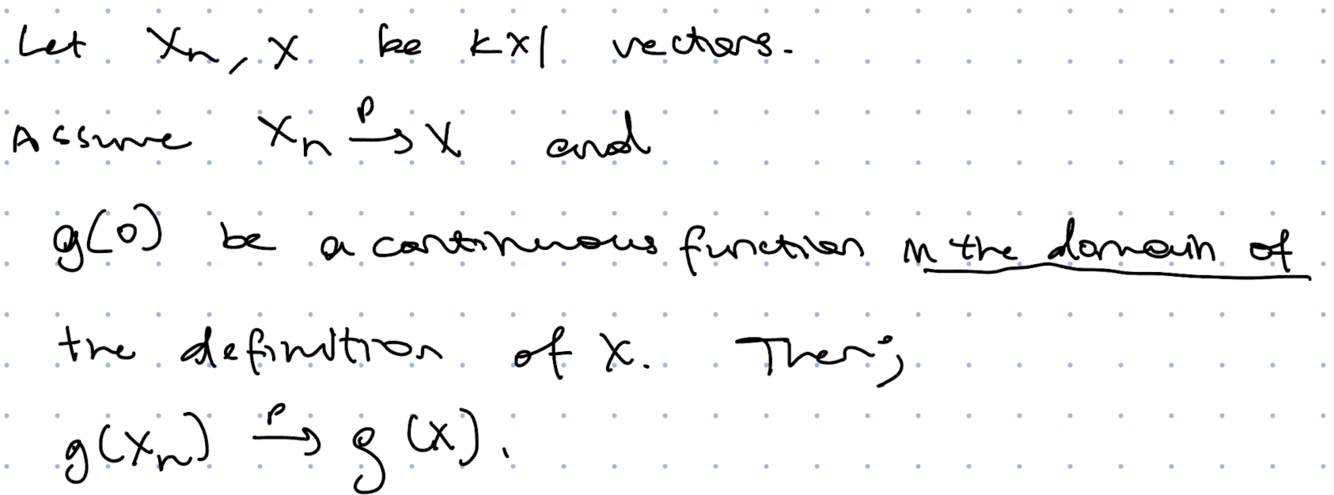 Let Xn, X be kx1 vectors.
Assume Xn →p X and
g(0) be a continuous function in the domain of
the definition of X. Then;
g(Xn) →p g(X).